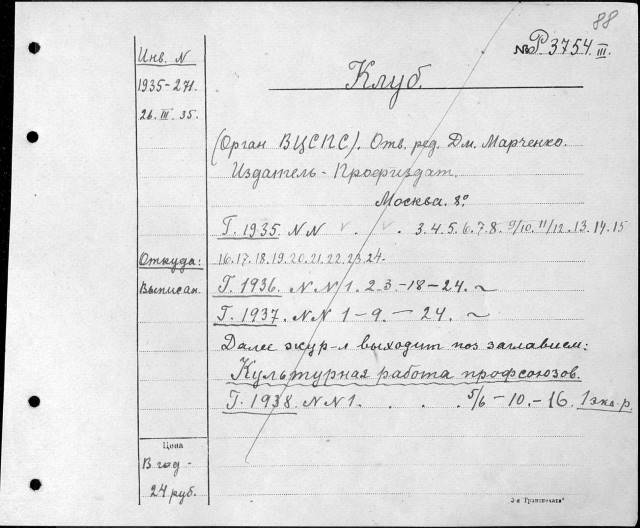 88
№ Р 3754 III.
Инв. N
1935-271.
26. III. 35.
Клуб.
(Орган ВЦСПС). Отв. ред. Дм. Марченко.
Издатель - Профиздат.
Москва. 8°
Г. 1935. NN . . 3.4.5.6.7.8. 9/10. 11/12. 13.14.15
16.17.18.19.20.21.22.23.24.
Откуда:
Выписан.
Г. 1936. NN 1. 2-3.-18-24. ~
Г. 1937. NN 1-9. - 24. ~
Далее жур-л выходит под заглавием:
Культурная работа профсоюзов.
Г. 1938. NN 1. . . . 5/6 - 10. - 16. 1 экз. р.
Цена
В год -
24 руб.
3-я Транспечать